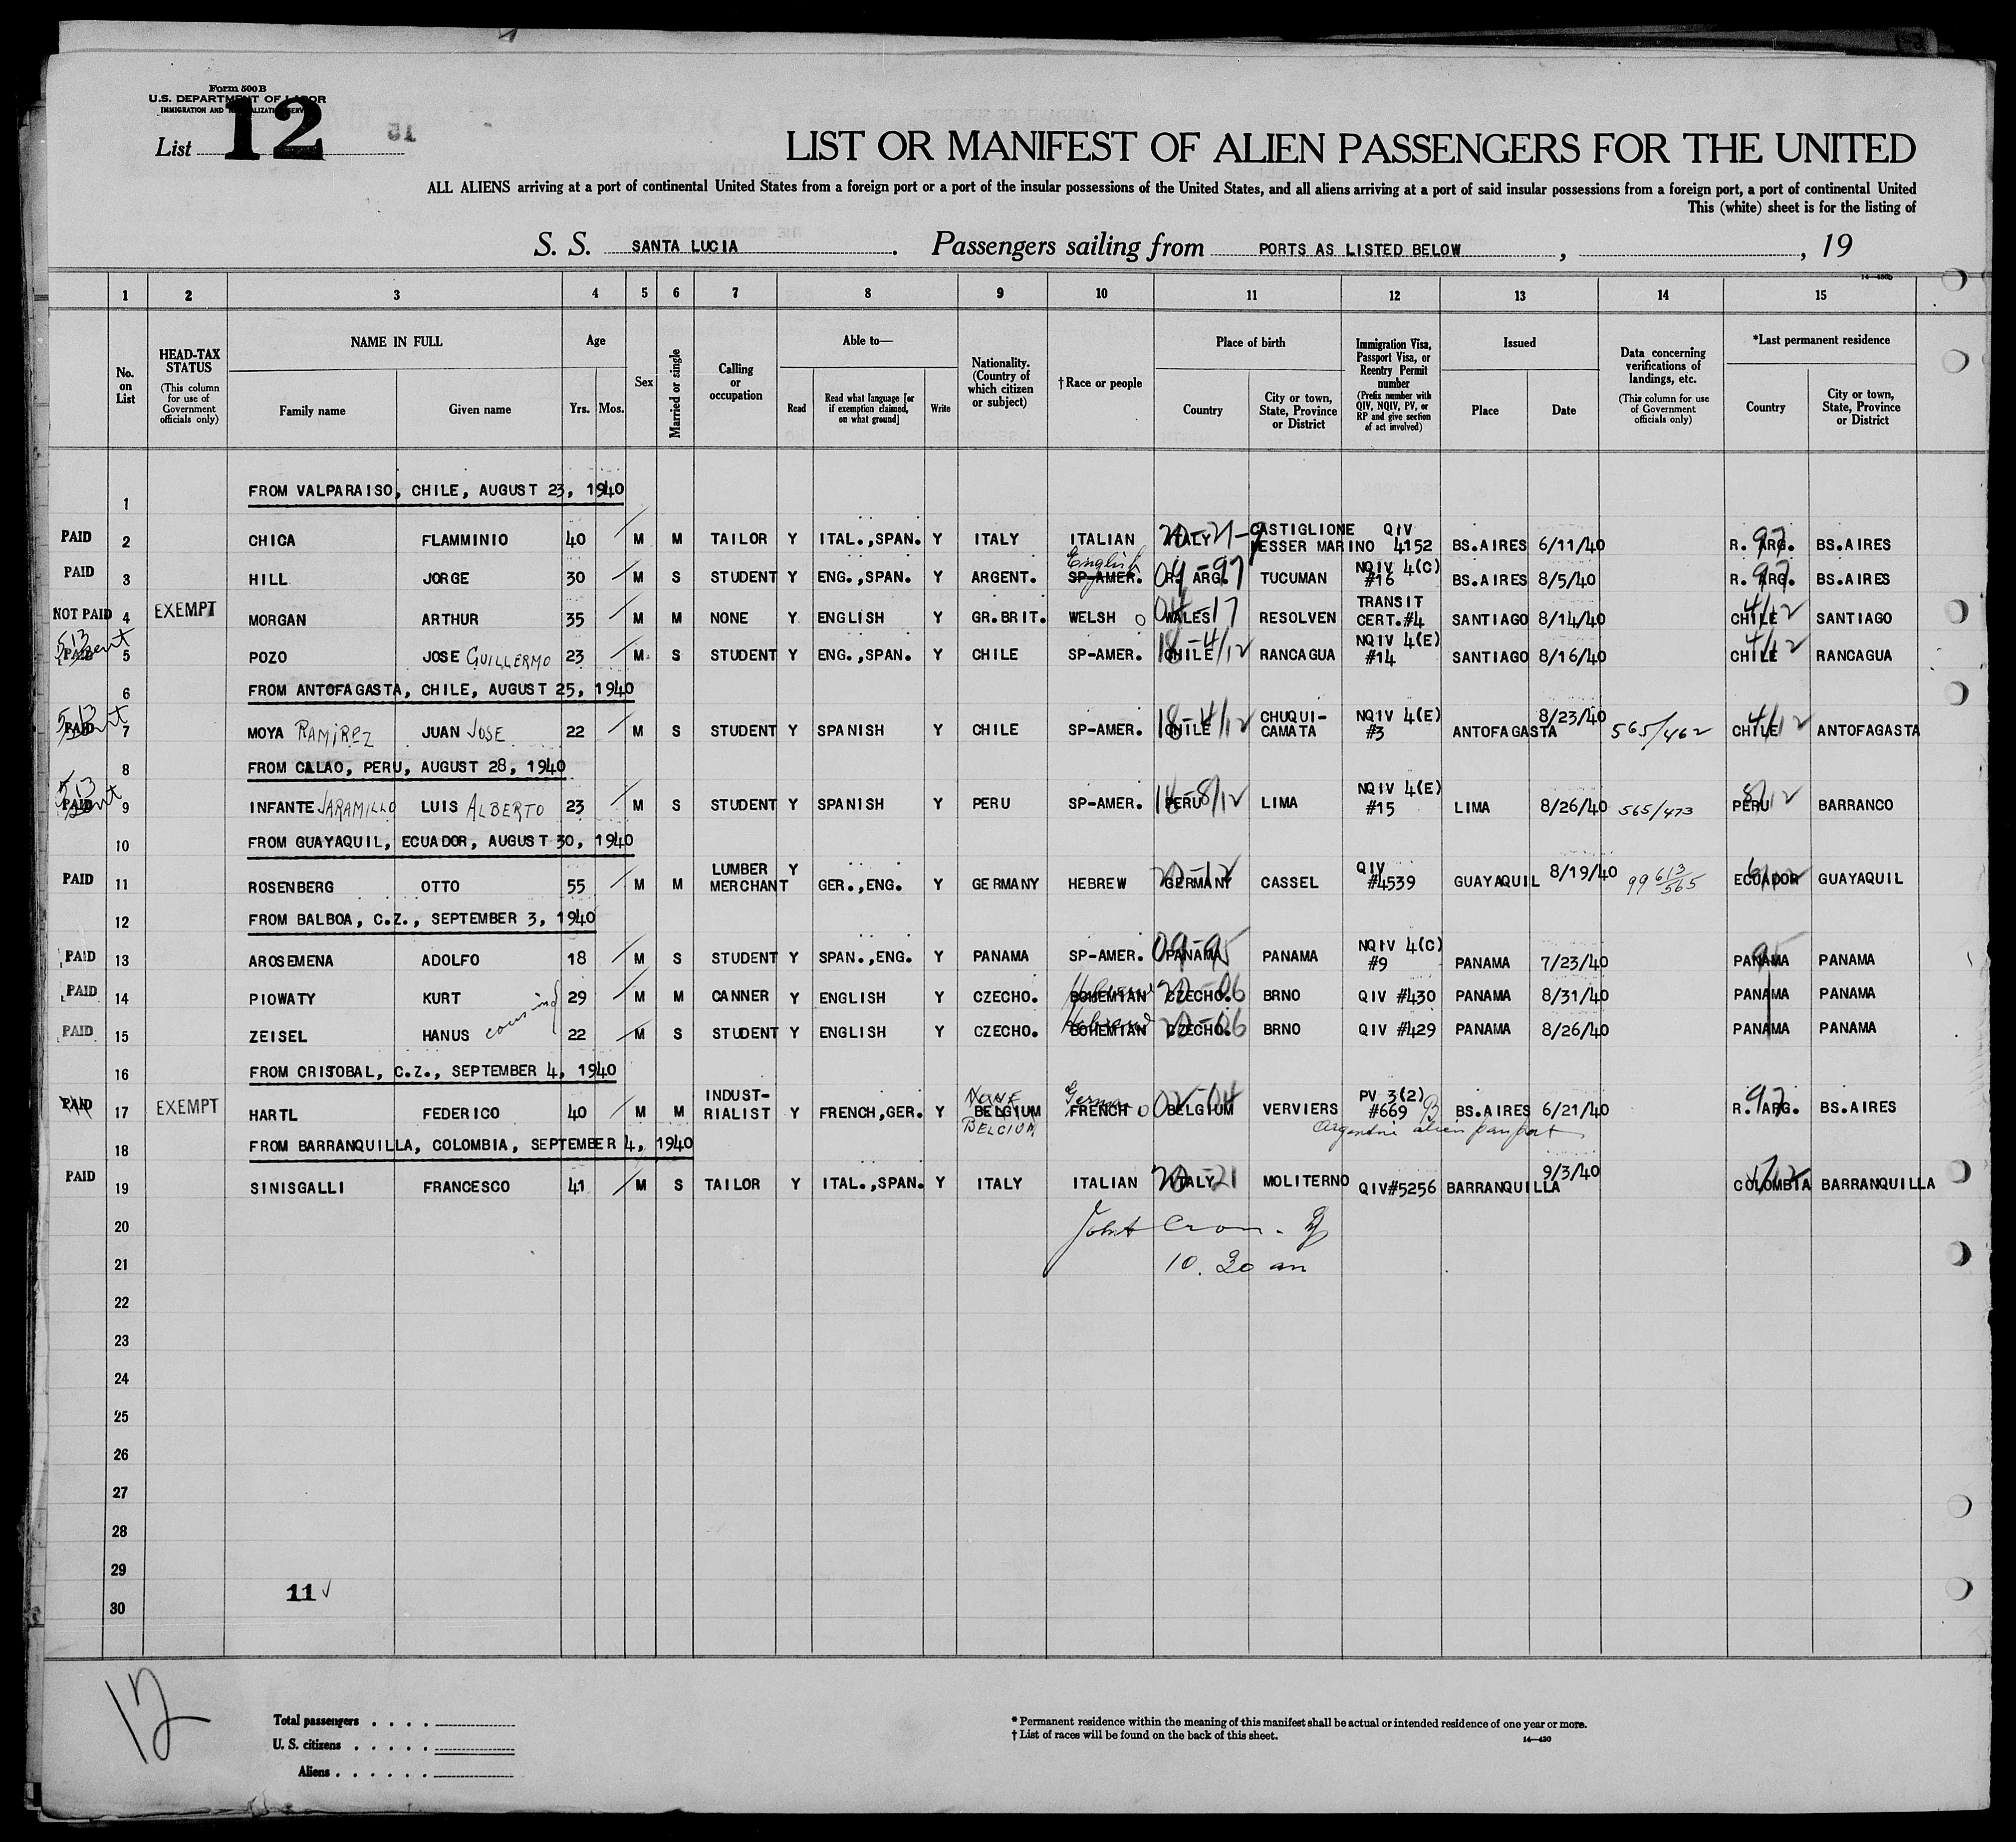 Form 500 B
U.S. DEPARTMENT OF LABOR
IMMIGRATION AND NATURALIZATION SERVICE
List 12
15
LIST OR MANIFEST OF ALIEN PASSENGERS FOR THE UNITED
ALL ALIENS arriving at a port of continental United States from a foreign port or a port of the insular possessions of the United States, and all aliens arriving at a port of said insular possessions from a foreign port, a port of continental United
This (white) sheet is for the listing of
S. S. SANTA LUCIA. Passengers sailing from PORTS AS LISTED BELOW, , 19
14—430b
1 2 3 4 5 6 7 8 9 10 11 12 13 14 15
No. on List
HEAD-TAX STATUS (This column for use of Government officials only)
NAME IN FULL
Family name Given name
Age
Yrs. Mos.
Sex
Married or single
Calling or occupation
Able to—
Read Read what language [or if exemption claimed, on what ground] Write
Nationality. (Country of which citizen or subject)
†Race or people
Place of birth
Country City or town, State, Province or District
Immigration Visa, Passport Visa, or Reentry Permit number (Prefix number with QIV, NQIV, PV, or RP and give section of act involved)
Issued
Place Date
Data concerning verifications of landings, etc. (This column for use of Government officials only)
*Last permanent residence
Country City or town, State, Province or District
1 FROM VALPARAISO, CHILE, AUGUST 23, 1940
PAID 2 CHICA FLAMMINIO 40 M M TAILOR Y ITAL.,SPAN. Y ITALY ITALIAN ITALY 20-21-9 CASTIGLIONE MESSER MARINO QIV 4152 BS.AIRES 6/11/40 R. ARG. 97 BS.AIRES
PAID 3 HILL JORGE 30 M S STUDENT Y ENG.,SPAN. Y ARGENT. SP-AMER. English R. ARG. 04-97 TUCUMAN NQIV 4(C) #16 BS.AIRES 8/5/40 R. ARG. 97 BS.AIRES
NOT PAID 4 EXEMPT MORGAN ARTHUR 35 M M NONE Y ENGLISH Y GR.BRIT. WELSH O WALES 04-17 RESOLVEN TRANSIT CERT.#4 SANTIAGO 8/14/40 CHILE 4/12 SANTIAGO
PAID 513 sent 5 POZO JOSE GUILLERMO 23 M S STUDENT Y ENG.,SPAN. Y CHILE SP-AMER. CHILE 18-4/12 RANCAGUA NQIV 4(E) #14 SANTIAGO 8/16/40 CHILE 4/12 RANCAGUA
6 FROM ANTOFAGASTA, CHILE, AUGUST 25, 1940
PAID 513 sent 7 MOYA RAMIREZ JUAN JOSE 22 M S STUDENT Y SPANISH Y CHILE SP-AMER. CHILE 18-4/12 CHUQUI-CAMATA NQIV 4(E) #3 ANTOFAGASTA 8/23/40 565/462 CHILE 4/12 ANTOFAGASTA
8 FROM CALLAO, PERU, AUGUST 28, 1940
PAID 513 sent 9 INFANTE JARAMILLO LUIS ALBERTO 23 M S STUDENT Y SPANISH Y PERU SP-AMER. PERU 18-8/12 LIMA NQIV 4(E) #15 LIMA 8/26/40 565/473 PERU 8/12 BARRANCO
10 FROM GUAYAQUIL, ECUADOR, AUGUST 30, 1940
PAID 11 ROSENBERG OTTO 55 M M LUMBER MERCHANT Y GER.,ENG. Y GERMANY HEBREW GERMANY 20-12 CASSEL QIV #4539 GUAYAQUIL 8/19/40 99 613/565 ECUADOR 6/12 GUAYAQUIL
12 FROM BALBOA, C.Z., SEPTEMBER 3, 1940
PAID 13 AROSEMENA ADOLFO 18 M S STUDENT Y SPAN.,ENG. Y PANAMA SP-AMER. PANAMA 09-95 PANAMA NQIV 4(C) #9 PANAMA 7/23/40 PANAMA 95 PANAMA
PAID 14 PIOWATY KURT 29 M M CANNER Y ENGLISH Y CZECHO. BOHEMIAN Hebrew CZECHO. 20-06 BRNO QIV #430 PANAMA 8/31/40 PANAMA PANAMA
cousins
PAID 15 ZEISEL HANUS 22 M S STUDENT Y ENGLISH Y CZECHO. BOHEMIAN Hebrew CZECHO. 20-06 BRNO QIV #429 PANAMA 8/26/40 PANAMA PANAMA
16 FROM CRISTOBAL, C.Z., SEPTEMBER 4, 1940
PAID 17 EXEMPT HARTL FEDERICO 40 M M INDUST-RIALIST Y FRENCH,GER. Y NONE BELGIUM BELGIUM FRENCH German O BELGIUM 02-04 VERVIERS PV 3(2) #669 B BS.AIRES 6/21/40 R. ARG. 97 BS.AIRES
Argentine alien passport
18 FROM BARRANQUILLA, COLOMBIA, SEPTEMBER 4, 1940
PAID 19 SINISGALLI FRANCESCO 41 M S TAILOR Y ITAL.,SPAN. Y ITALY ITALIAN ITALY 20-21 MOLITERNO QIV#5256 BARRANQUILLA 9/3/40 COLOMBIA BARRANQUILLA
20
10.30 am
21
22
23
24
25
26
27
28
29
11
30
12
Total passengers
U. S. citizens
Aliens
* Permanent residence within the meaning of this manifest shall be actual or intended residence of one year or more.
† List of races will be found on the back of this sheet.
14—430